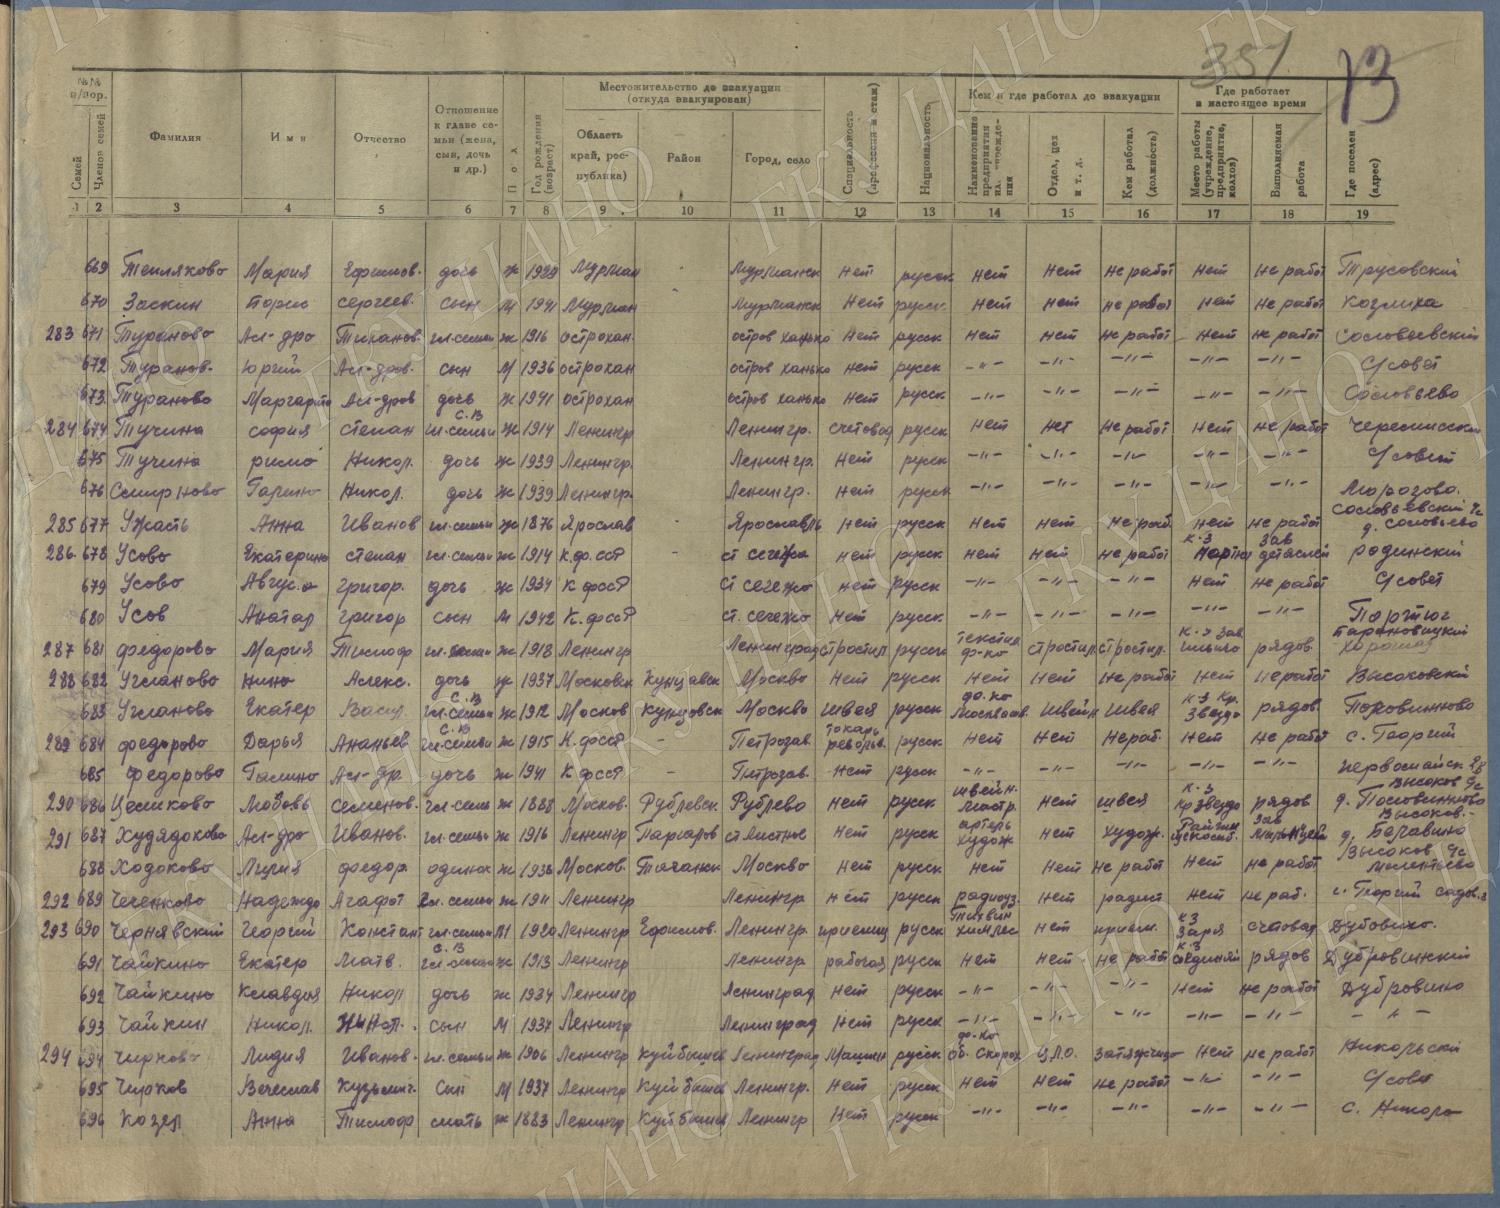 351 73
№№ п/пор.
Семей
Членов семей
Фамилия
Имя
Отчество
Отношение к главе семьи (жена, сын, дочь и др.)
Пол
Год рождения (возраст)
Местожительство до эвакуации (откуда эвакуирован)
Область край, республика)
Район
Город, село
Специальность (профессия и стаж)
Национальность
Кем и где работал до эвакуации
Наименование предприятия или учреждения
Отдел, цех и т. д.
Кем работал (должность)
Где работает в настоящее время
Место работы (учреждение, предприятие, колхоз)
Выполняемая работа
Где поселен (адрес)
1 2 3 4 5 6 7 8 9 10 11 12 13 14 15 16 17 18 19
669 Теплякова Мария Ефимов. дочь ж 1939 Мурман Мурманск нет русск нет нет не работ нет не работ Трусовский
670 Заскин Борис сергеев. сын М 1941 Мурман Мурманск нет русск. нет нет не работ нет не работ Козлиха
283 671 Туранова Ал-дра Тиханов. гл.семьи ж 1916 острохан. остров ханько нет русск нет нет не работ нет не работ Соловьевский
672 Туранов. Юрий Ал-дров. сын М 1936 острохан остров ханько нет русск -"- -"- -"- -"- -"- С/совет
673 Туранова Маргарита Ал-дров дочь ж 1941 острохан остров ханько нет русск -"- -"- -"- -"- -"- Соловьево
284 674 Тучина софия степан гл.семьи с.в ж 1914 Ленингр Ленингр. счетовод русск нет нет не работ нет не работ Черемисский
675 Тучина римма Никол. дочь ж 1939 Ленингр. Ленингр. нет русск -"- -"- -"- -"- -"- С/совет
676 Смирнова Галина Никол. дочь ж 1939 Ленингр. Ленингр. нет русск -"- -"- -"- -"- -"- Морозово.
285 677 Ужасть Анна Иванов гл.семьи ж 1876 Ярослав Ярославль нет русск нет нет не раб. нет не работ Соловьевский с/с д. Соловьево
286 678 Усова Екатерина степан гл.семьи ж 1914 к.ф.сср - ст сегежа нет русск нет нет не работ к-з зав детяслей Родинский
679 Усова Август-а григор. дочь ж 1934 к фсср ст сегежа нет русск -"- -"- -"- нет не работ С/совет
680 Усов Анатол григор сын М 1942 к.фсср ст. сегежа нет русск -"- -"- -"- -"- -"- Портюг
287 681 федорова Мария Тимоф гл.семьи ж 1918 Ленингр Ленинград русск текстил ф-ка к-з рядов.
288 682 Угланова Нина Алекс. дочь ж 1937 Московск Кунцевск Москва нет русск нет нет не работ нет не работ Высоковский
683 Угланова Екатер Васил. гл.семьи с.в ж 1912 Москов Кунцовск Москва швея русск фа-ка Москвошв. швейн швея к-з Кр. Звезда рядов. Половинново
289 684 федорова Дарья Ананьев гл.семьи с.в ж 1915 К.фсср - Петрозав. токарь револьв. русск нет нет не раб. нет не работ с. Георгий
685 федорова Галина Ал-др. дочь ж 1941 К фсср - Петрозав. нет русск -"- -"- -"- -"- -"- Первомайск.
290 686 Цешкова Любовь семенов. гл.семьи ж 1888 Москов. Рублевск. Рублево нет русск швейн. мастр. нет швея к-з кр звезда рядов Высоков с/с д. Половинново
291 687 Худядокова Ал-дра Иванов. гл.семьи ж 1916 Ленингр Паргалов нет русск артель худож нет худож. зав Высоков.
688 Ходокова Лидия федор. одинок ж 1938 Москов. Таганк Москва нет русск нет нет не работ нет не работ Высоков с/с
292 689 Чеченкова Надежда Агафот гл.семьи ж 1911 Ленингр Ленингр нет русск нет радист нет не раб. с. Георгий
293 690 Чернявский Георгий Констан гл.семьи М 1920 Ленингр Ефимов. Ленингр. приемщ русск Тихвин химлес нет прием. к з Заря счетовод Дубовино.
691 Чайкина Екатер Матв. гл.семьи с.в ж 1913 Ленингр Ленингр рабочая русск нет нет не работ к.з рядов Дубровинский
692 Чайкина Клавдия Никол дочь ж 1934 Ленингр Ленинград нет русск -"- -"- -"- нет не работ Дубровино
693 Чайкин Никол. Никол. сын М 1937 Ленингр Ленинград нет русск -"- -"- -"- -"- -"- -"-
294 694 Чиркова Лидия Иванов. гл.семьи ж 1906 Ленингр Куйбышев Ленинград Машин русск фа-ка об. Скорох Ц.Л.О. затяжчица нет не работ Никольский
695 Чирков Вечеслав Кузьмич. сын М 1937 Ленингр Куйбышев Ленингр. нет русск нет нет не работ -"- -"- С/совет
696 Козел Анна Тимоф мать ж 1883 Ленингр Куйбышев Ленингр нет русск -"- -"- -"- -"- -"- с. Никола
ГКУ ЦАНО